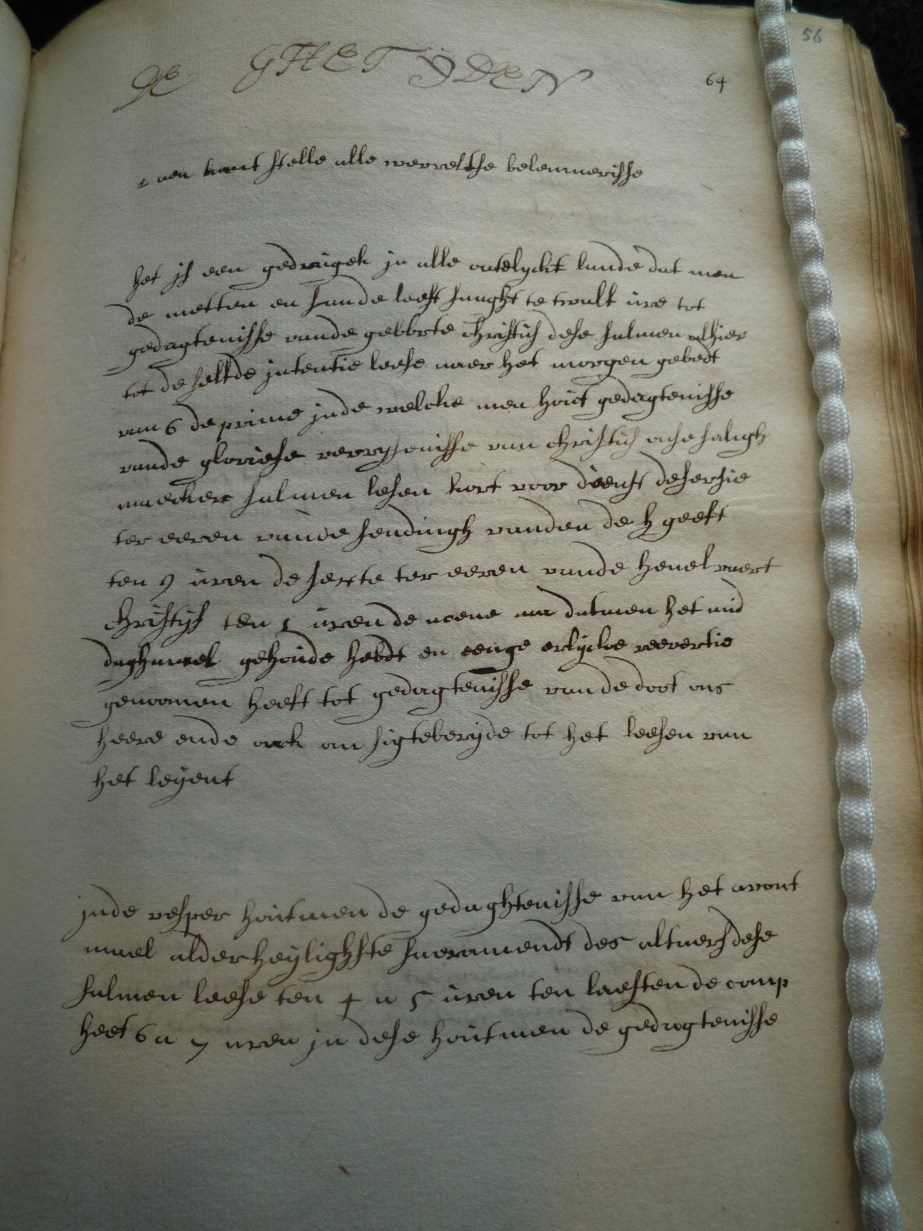 56
DE GHETYDEN
64
aen kant stelle alle werreltse belemmerisse
het is een gedruigek in alle ontelyckt lande dat men
de metten en lande leest snaght te twalt ure tot
gedagtenisse vande gebborte christus dese salmen alhier
tot deselfde intentie leese naer het morgen gebedt
van 6 de prime inde welcke men hout gedagtenisse
vande gloriese verrysenisse van christus onse saligh
maecker salmen lesen kort voor dienst de tersie
ter eeren vande sendingh vanden de h geest
ten 9 uren de sexte ter eeren vande hemelvaert
christys ten 1 uren de noene nar dat men het mid
daghmael gehoude hebdt en eenige erlycke recvertie
genoomen heeft tot gedagtenisse van de doot ons
heere ende ock om sigteberyde tot het leesen van
het leyent
inde vesper hout men de gedaghtenisse van het avont
mael alderheylighste sacramendt des altaers dese
salmen leese ten 4 a 5 uren ten laesten de comp
leet 6 a 7 uren in dese hout men de gedagtenisse